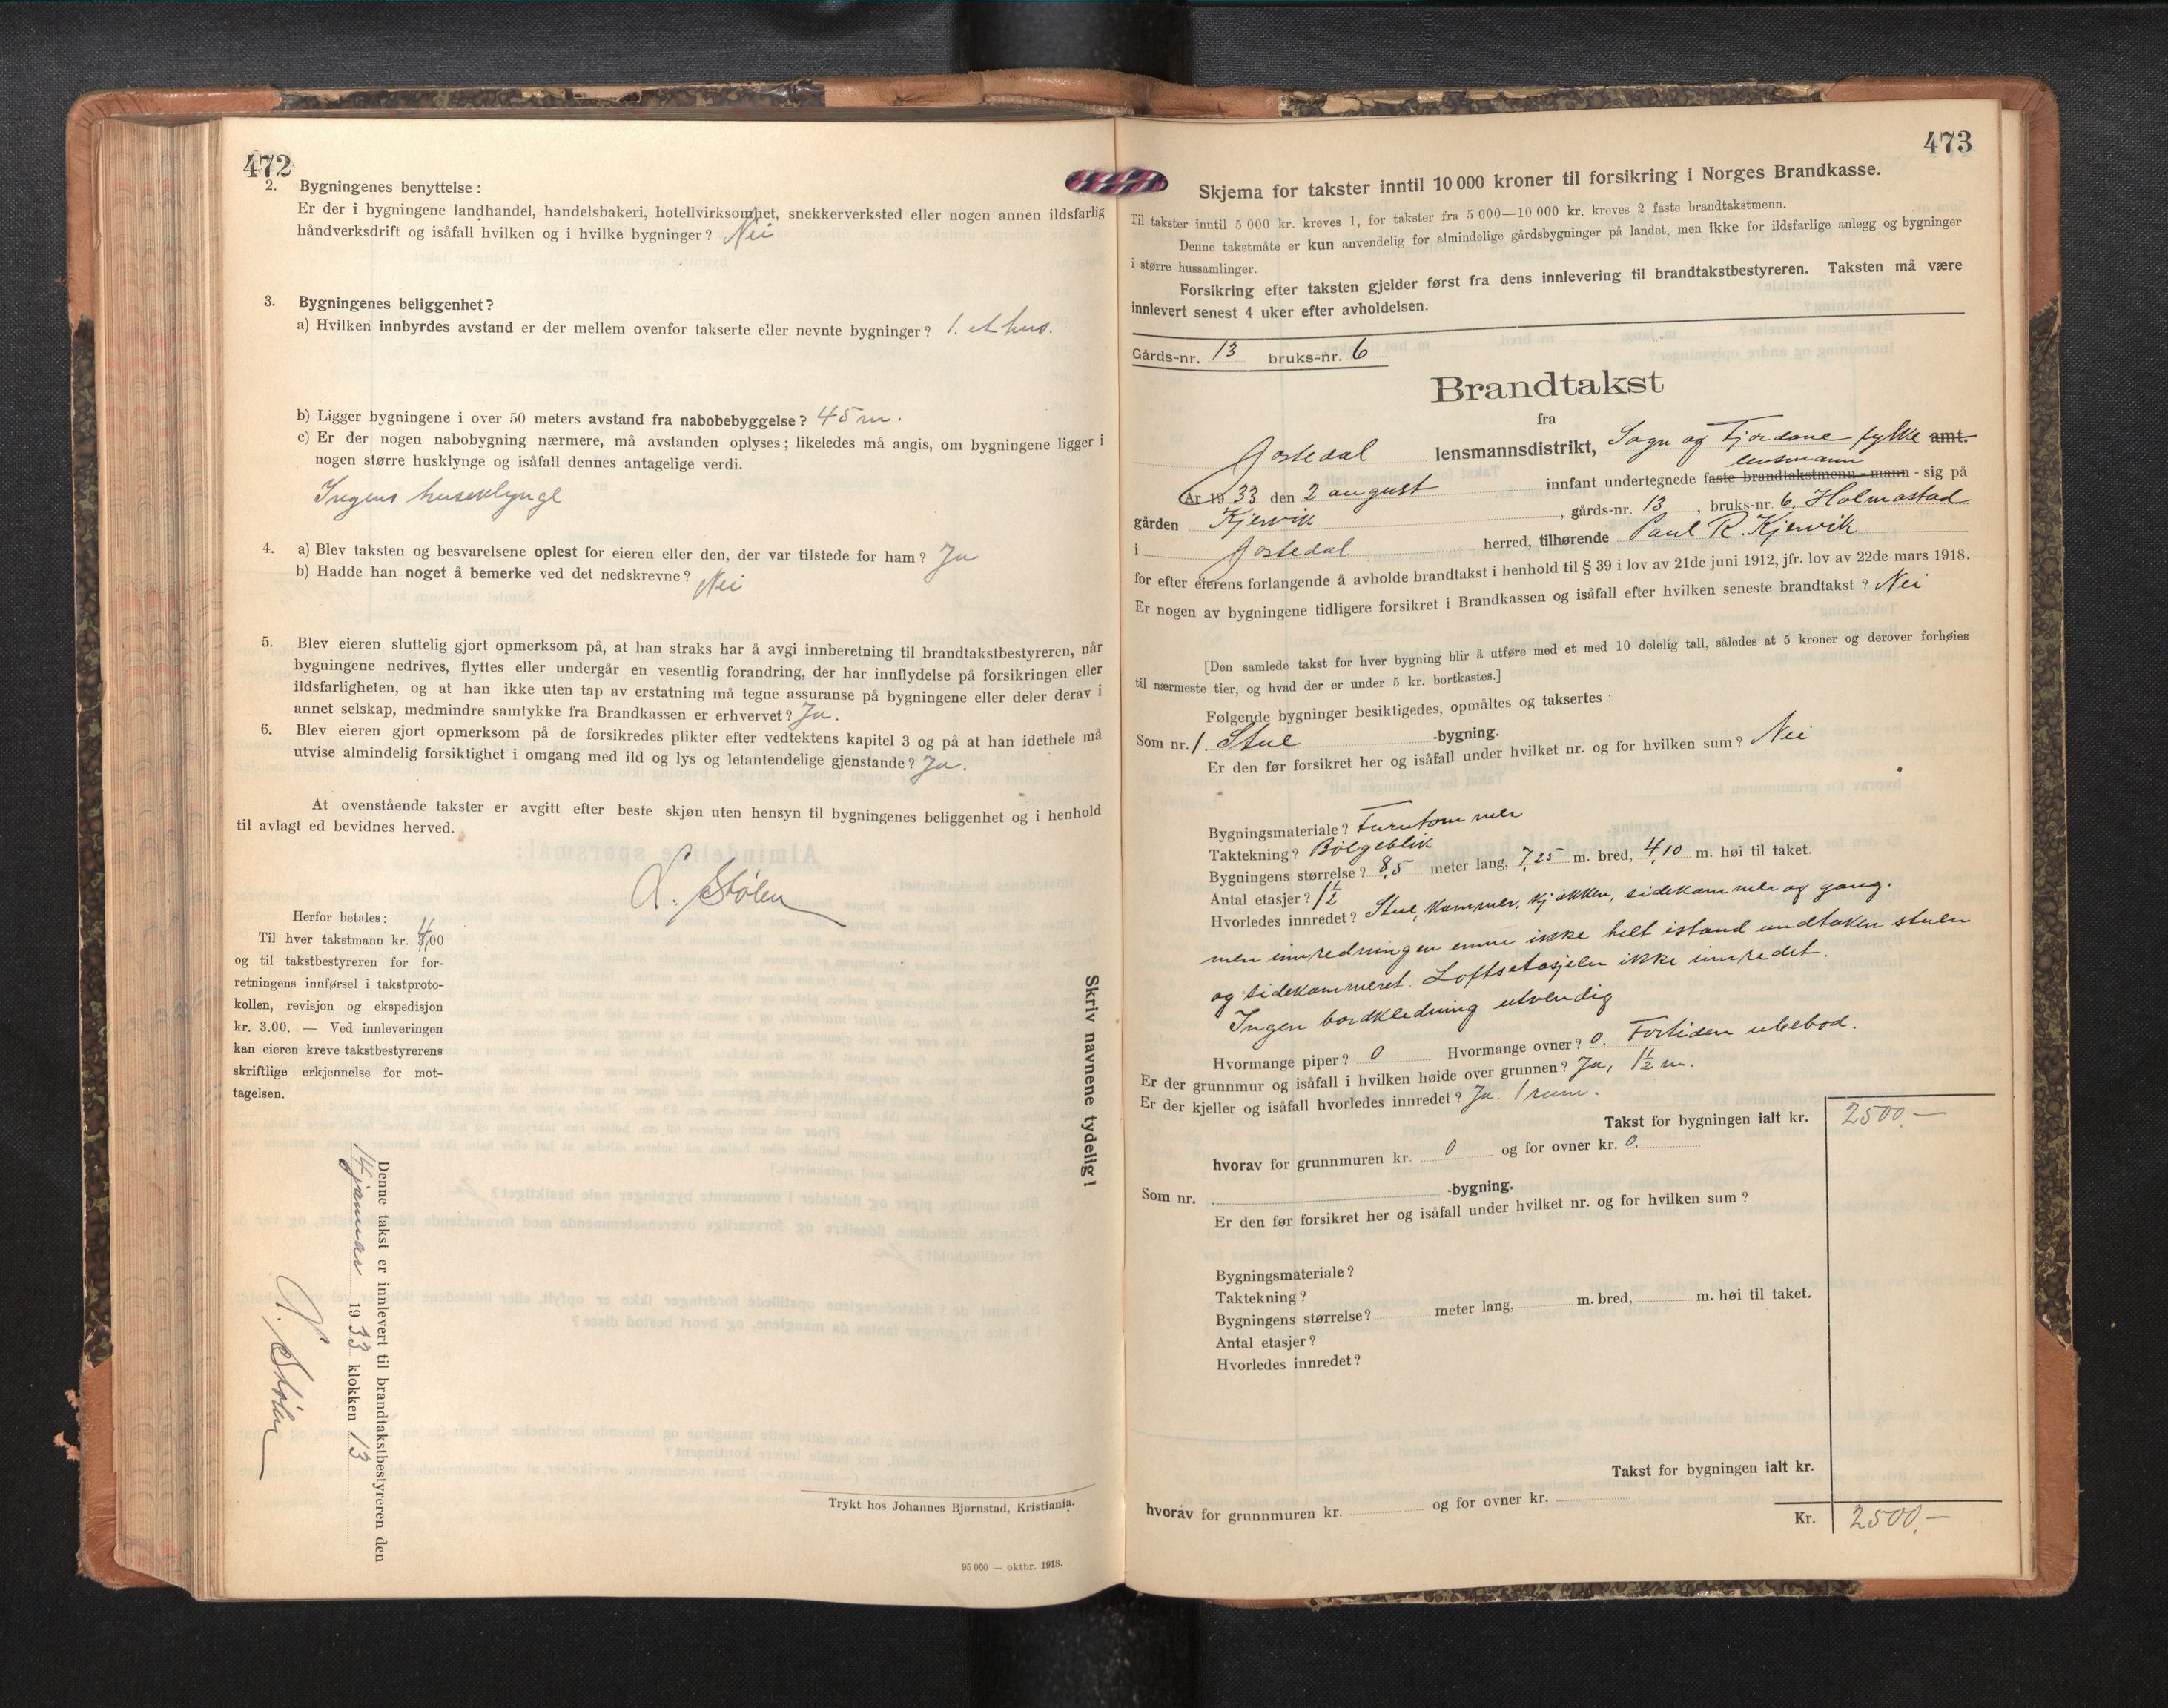 472
2. Bygningenes benyttelse :
Er der i bygningene landhandel, handelsbakeri, hotellvirksomhet, snekkerverksted eller nogen annen ildsfarlig
håndverksdrift og isåfall hvilken og i hvilke bygninger? Nei
3. Bygningenes beliggenhet?
a) Hvilken innbyrdes avstand er der mellem ovenfor takserte eller nevnte bygninger? 1. et hus.
b) Ligger bygningene i over 50 meters avstand fra nabobebyggelse? 45 m.
c) Er der nogen nabobygning nærmere, må avstanden oplyses; likeledes må angis, om bygningene ligger i
nogen større husklynge og isåfall dennes antagelige verdi.
Ingens huseklynge
4. a) Blev taksten og besvarelsene oplest for eieren eller den, der var tilstede for ham? Ja
b) Hadde han noget å bemerke ved det nedskrevne? Nei
5. Blev eieren sluttelig gjort opmerksom på, at han straks har å avgi innberetning til brandtakstbestyreren, når
bygningene nedrives, flyttes eller undergår en vesentlig forandring, der har innflydelse på forsikringen eller
ildsfarligheten, og at han ikke uten tap av erstatning må tegne assuranse på bygningene eller deler derav i
annet selskap, medmindre samtykke fra Brandkassen er erhvervet? Ja.
6. Blev eieren gjort opmerksom på de forsikredes plikter efter vedtektens kapitel 3 og på at han idethele må
utvise almindelig forsiktighet i omgang med ild og lys og letantendelige gjenstande? Ja.
At ovenstående takster er avgitt efter beste skjøn uten hensyn til bygningenes beliggenhet og i henhold
til avlagt ed bevidnes herved.
L. Stølen
Herfor betales:
Til hver takstmann kr. 3,00 4
og til takstbestyreren for for-
retningens innførsel i takstproto-
kollen, revisjon og ekspedisjon
kr. 3.00. — Ved innleveringen
kan eieren kreve takstbestyrerens
skriftlige erkjennelse for mot-
tagelsen.
Skriv navnene tydelig!
Denne takst er innlevert til brandtakstbestyreren den
14 januar 1933 klokken 13
L. Stølen
Trykt hos Johannes Bjørnstad, Kristiania.
95 000 — oktbr. 1918.
473
Skjema for takster inntil 10 000 kroner til forsikring i Norges Brandkasse.
Til takster inntil 5 000 kr. kreves 1, for takster fra 5 000—10 000 kr. kreves 2 faste brandtakstmenn.
Denne takstmåte er kun anvendelig for almindelige gårdsbygninger på landet, men ikke for ildsfarlige anlegg og bygninger
i større hussamlinger.
Forsikring efter taksten gjelder først fra dens innlevering til brandtakstbestyreren. Taksten må være
innlevert senest 4 uker efter avholdelsen.
Gårds-nr. 13 bruks-nr. 6
Brandtakst
fra
Jostedal lensmannsdistrikt, Sogn og Fjordane fylke amt.
lensmann
År 1933 den 2 august innfant undertegnede faste brandtakstmenn - mann - sig på
gården Kjervik, gårds-nr. 13, bruks-nr. 6, Holmastad
i Jostedal herred, tilhørende Paul R. Kjervik
for efter eierens forlangende å avholde brandtakst i henhold til § 39 i lov av 21de juni 1912, jfr. lov av 22de mars 1918.
Er nogen av bygningene tidligere forsikret i Brandkassen og isåfall efter hvilken seneste brandtakst? Nei
[Den samlede takst for hver bygning blir å utføre med et med 10 delelig tall, således at 5 kroner og derover forhøies
til nærmeste tier, og hvad der er under 5 kr. bortkastes.]
Følgende bygninger besiktigedes, opmåltes og taksertes :
Som nr. 1. Stue -bygning.
Er den før forsikret her og isåfall under hvilket nr. og for hvilken sum? Nei
Bygningsmateriale? Furutømmer
Taktekning? Bølgeblik
Bygningens størrelse? 8,5 meter lang, 7,25 m. bred, 4,10 m. høi til taket.
Antal etasjer? 1½
Hvorledes innredet? Stue, kammer, kjøkken, sidekammer og gang.
men innredningen ennu ikke helt istand undtaken stuen
og sidekammeret. Loftsetasjen ikke innredet.
Ingen bordkledning utvendig
Hvormange piper? 0 Hvormange ovner? 0. Fortiden ubebod.
Er der grunnmur og isåfall i hvilken høide over grunnen? Ja, 1½ m.
Er der kjeller og isåfall hvorledes innredet? Ja. 1 rum.
Takst for bygningen ialt kr. 2500.—
hvorav for grunnmuren kr. 0 og for ovner kr. 0.
Som nr. -bygning.
Er den før forsikret her og isåfall under hvilket nr. og for hvilken sum?
Bygningsmateriale?
Taktekning?
Bygningens størrelse? meter lang, m. bred, m. høi til taket.
Antal etasjer?
Hvorledes innredet?
Takst for bygningen ialt kr.
hvorav for grunnmuren kr. og for ovner kr.
Kr. 2500,—